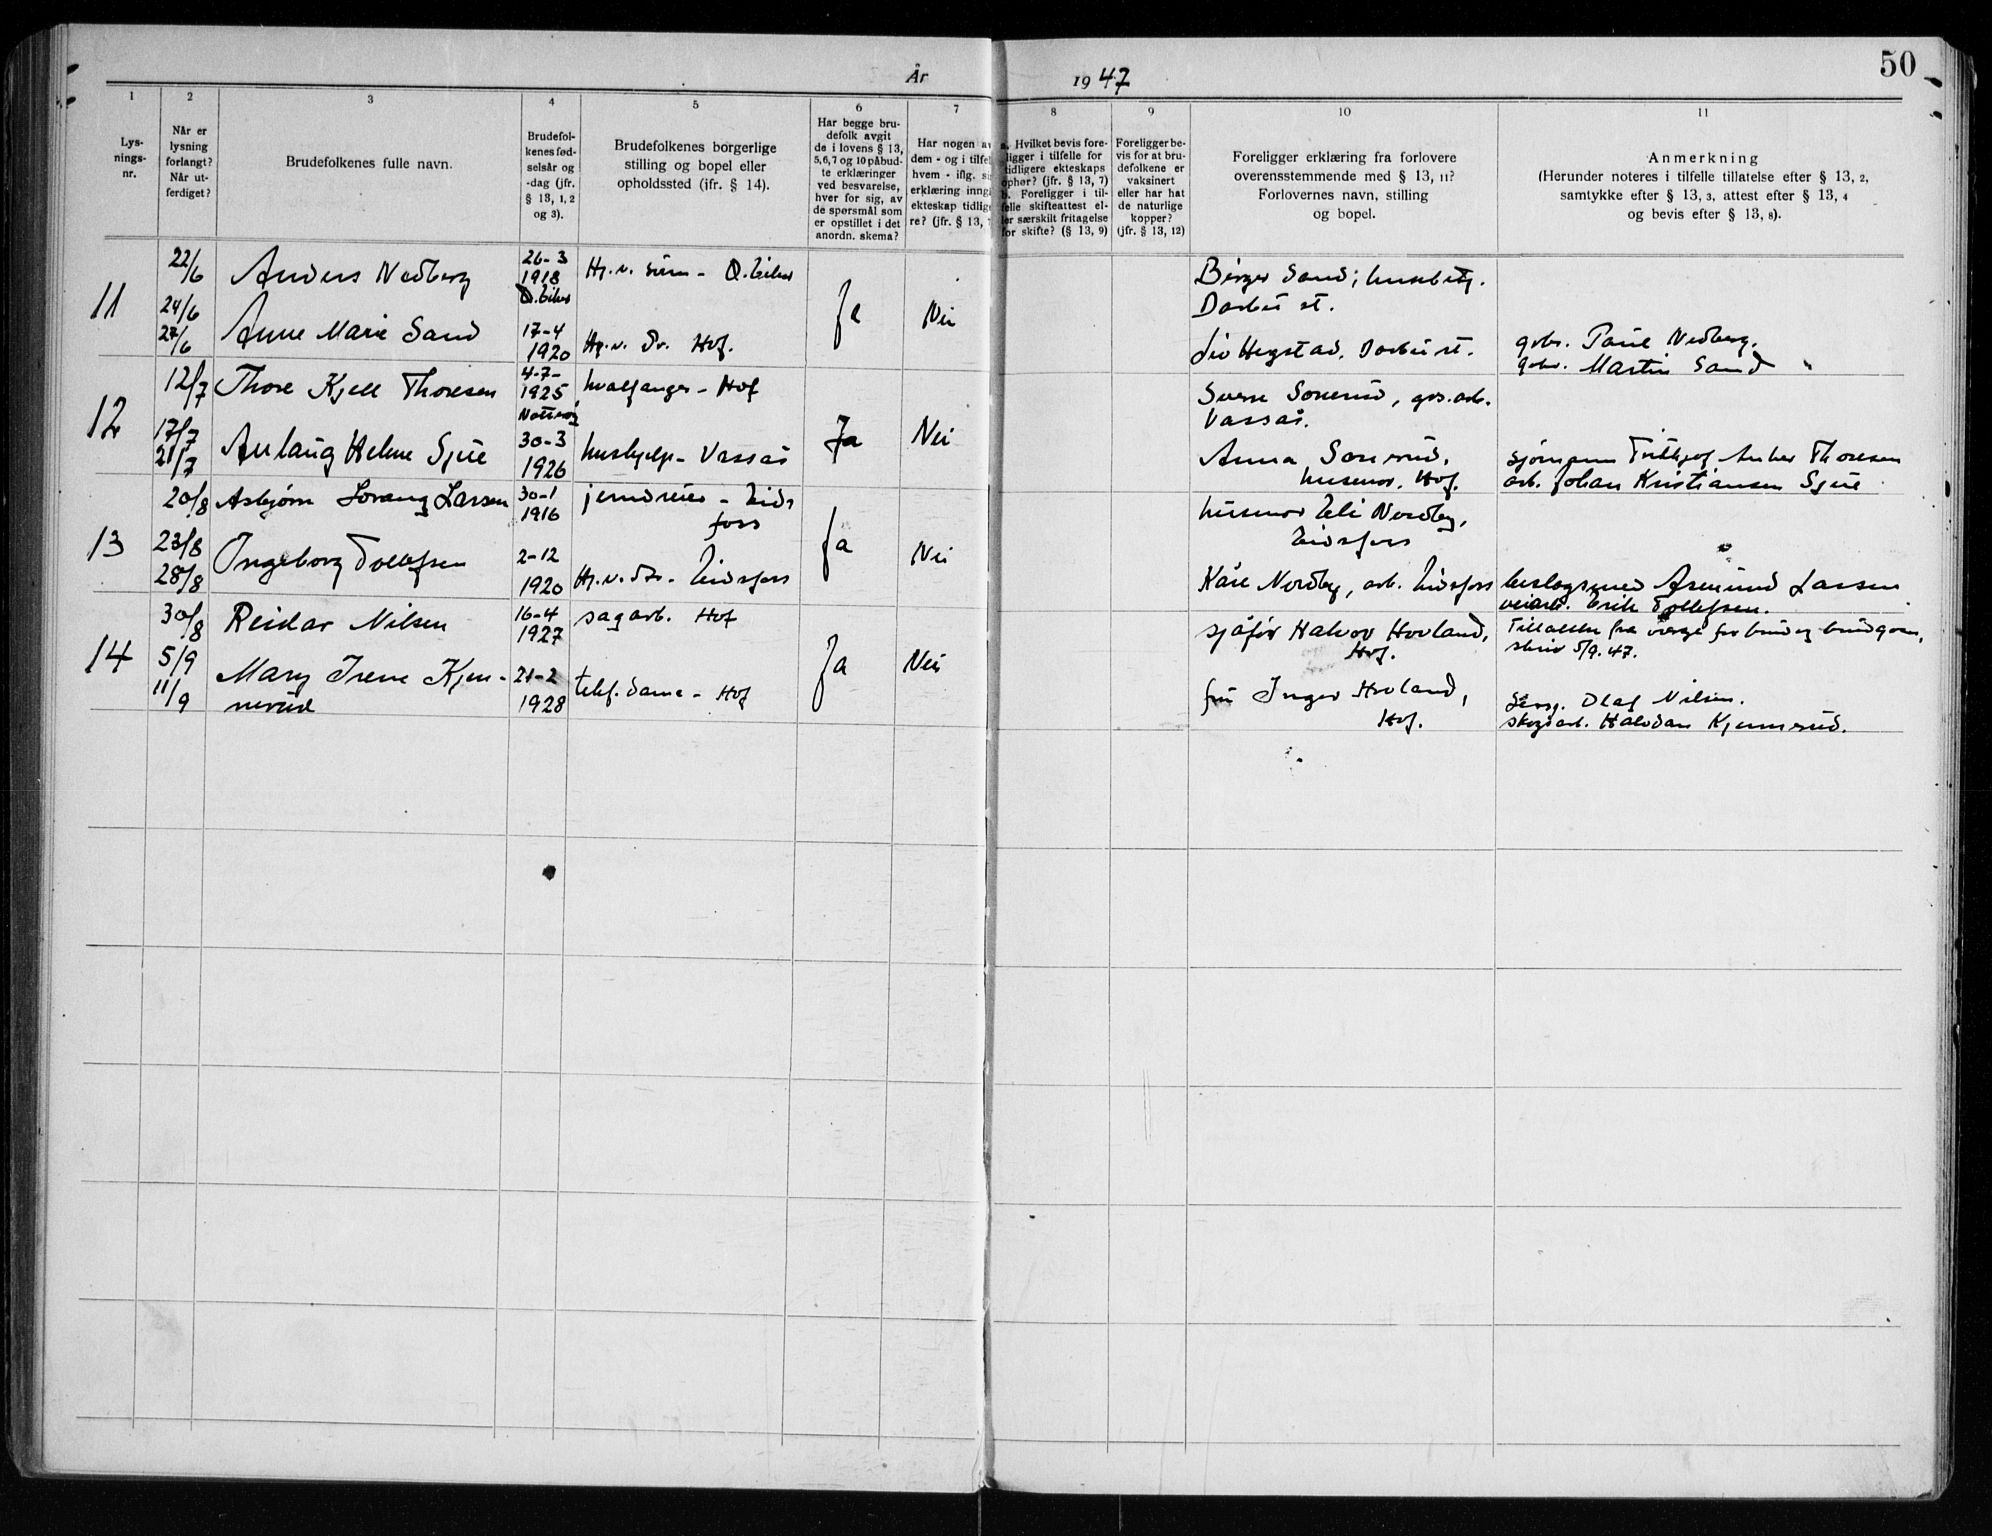 50
År 1947
1 2 3 4 5 6 7 8 9 10 11
Lys-
nings-
nr.
Når er
lysning
forlangt?
Når ut-
ferdiget?
Brudefolkenes fulle navn.
Brudefol-
kenes fød-
selsår og
-dag (jfr.
§ 13, 1, 2
og 3).
Brudefolkenes borgerlige
stilling og bopel eller
opholdssted (jfr. § 14).
Har begge bru-
defolk avgit
de i lovens § 13,
5, 6, 7 og 10 påbud-
te erklæringer
ved besvarelse,
hver for sig, av
de spørsmål som
er opstillet i det
anordn. skema?
Har nogen av
dem - og i tilfel
hvem - iflg. si
erklæring inng
ekteskap tidlig
re? (jfr. § 13, 7
a. Hvilket bevis fore-
ligger i tilfelle for
tidligere ekteskaps
ophør? (jfr. § 13, 7)
b. Foreligger i til-
felle skifteattest el-
ler særskilt fritagelse
for skifte? (§ 13, 9)
Foreligger be-
vis for at bru-
defolkene er
vaksinert
eller har hat
de naturlige
kopper?
(jfr. § 13, 12)
Foreligger erklæring fra forlovere
overensstemmende med § 13, 11?
Forlovernes navn, stilling
og bopel.
Anmerkning
(Herunder noteres i tilfelle tillatelse efter § 13, 2,
samtykke efter § 13, 3, attest efter § 13, 4
og bevis efter § 13, 8).
11
22/6
24/6
27/6
Anders Nedberg
Anne Marie Sand
26-3
1918
Ø. Eiker
17-4
1920
Hj.v. sønn - Ø. Eiker
Hj.v. Dr. Hof.
Ja
Nei
Birger Sand, husbetj.
Darbu st.
Liv Hegstad, Darbu st.
gbr. Paul Nedberg.
gbr. Martin Sand
12
12/7
17/7
21/7
Thore Kjell Thoresen
Aulaug Helene Sjue
4-7-
1925
Nøtterøy
30-3
1926
hvalfanger - Hof
hushjelp - Vassås
Ja
Nei
Sverre Sonerud, grs.arb.
Vassås.
Anna Sonerud,
husmor, Hof.
sjømann Thoresen
arb. Johan Kristiansen Sjue
13
20/8
23/8
28/8
Asbjørn Lorang Larsen
Ingeborg Tollefsen
30-1
1916
2-12
1920
jerndreier - Eids
foss
Hj.v. dtr. - Eidsfoss
Ja
Nei
husmor Eli Nordby,
Eidsfoss
Kåre Nordby, arb. Eidsfoss
beslagsmed Asmund Larsen
veiarb. Erik Tollefsen.
14
30/8
5/9
11/9
Reidar Nilsen
Mary Irene Kjen-
nerud
16-4
1927
21-2
1928
sagarb. Hof
telef.dame - Hof
Ja
Nei
sjåfør Halvor Hovland,
Hof.
fru Inger Hovland,
Hof.
Tillatelse fra verge for brud og brudgom,
skriv 5/9.47.
Olaf Nilsen.
skogsarb. Halvdan Kjennerud.